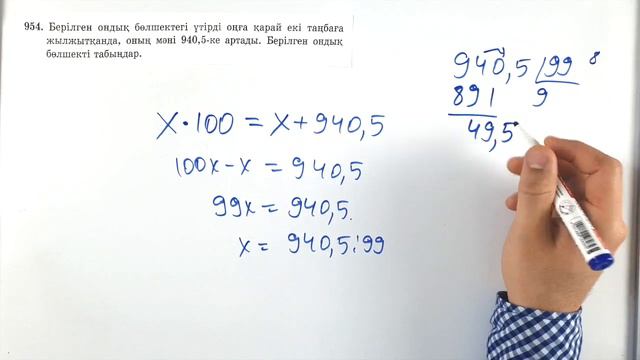 954. Берілген ондық бөлшектегі үтірді оңға қарай екі таңбаға
жылжытқанда, оның мәні 940,5-ке артады. Берілген ондық
бөлшекті табыңдар.
x·100 = x+940,5
100x-x = 940,5
99x = 940,5.
x = 940,5:99
940,5 99 8
891 9
49,5